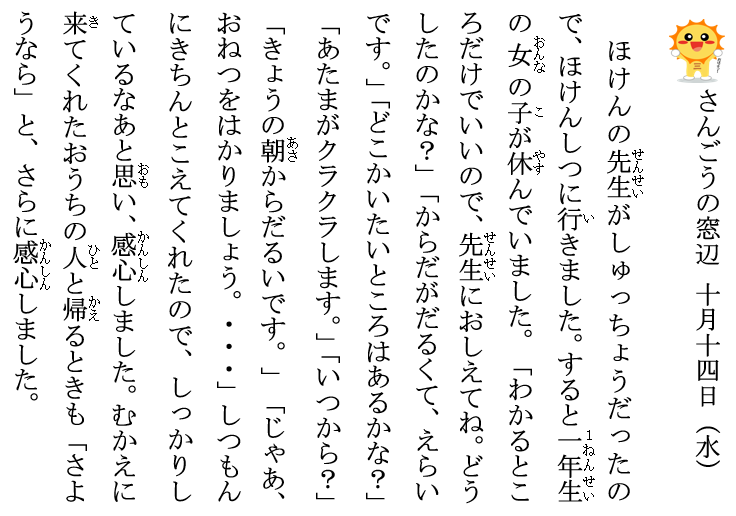 さんごうの窓辺　十月十四日（水）
ほけんの先生がしゅっちょうだったの
で、ほけんしつに行きました。すると一年生
の女の子が休んでいました。「わかるとこ
ろだけでいいので、先生におしえてね。どう
したのかな？」「からだがだるくて、えらい
です。」「どこかいたいところはあるかな？」
「あたまがクラクラします。」「いつから？」
「きょうの朝からだるいです。」「じゃあ、
おねつをはかりましょう。・・・」しつもん
にきちんとこえてくれたので、しっかりし
ているなあと思い、感心しました。むかえに
来てくれたおうちの人と帰るときも「さよ
うなら」と、さらに感心しました。